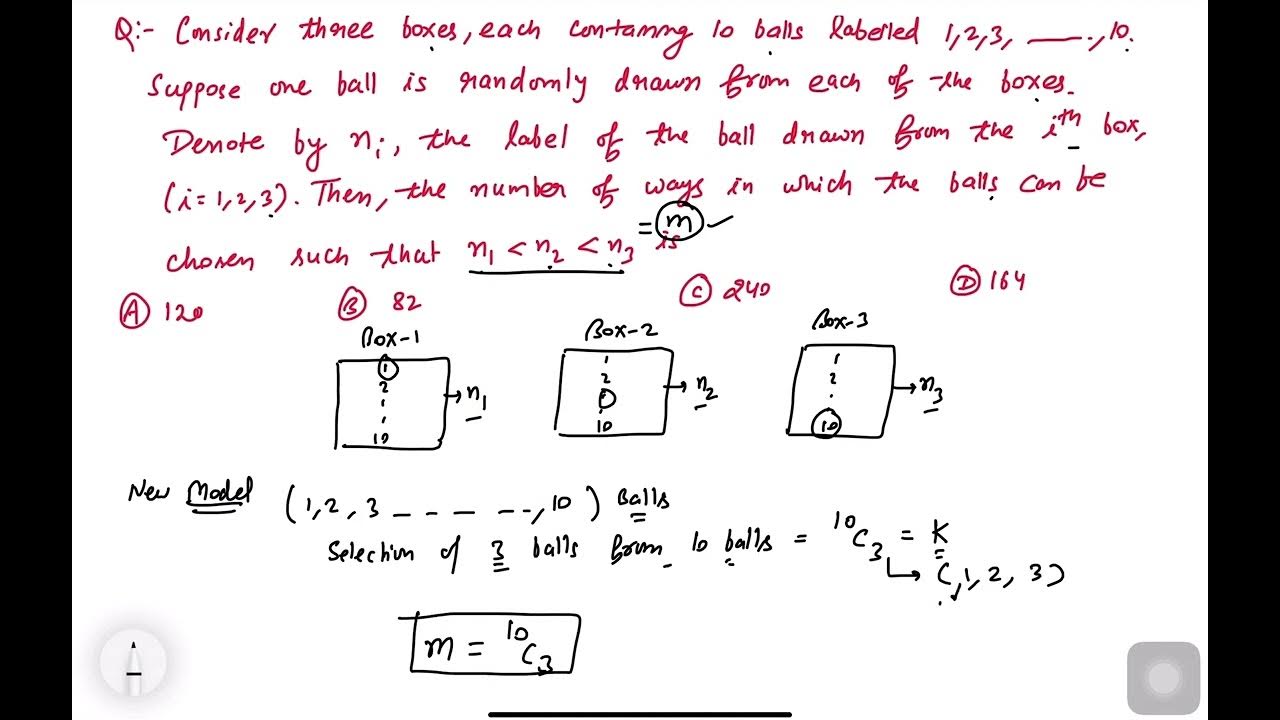 Q:- Consider three boxes, each containing 10 balls labelled 1,2,3, ——..,10.
Suppose one ball is randomly drawn from each of the boxes.
Denote by ni, the label of the ball drawn from the ith box,
(i= 1,2,3). Then, the number of ways in which the balls can be
= m ✓
chosen such that n1 < n2 < n3 is
A 120 B 82 C 240 D 164
Box-1 Box-2 Box-3
1 1 1
2 2 2
→ n1 → n2 → n3
10 10 10
New Model (1,2,3 – – – – – ..,10) Balls
Selection of 3 balls from 10 balls = 10C3 = K
→ (1, 2, 3)
m = 10C3